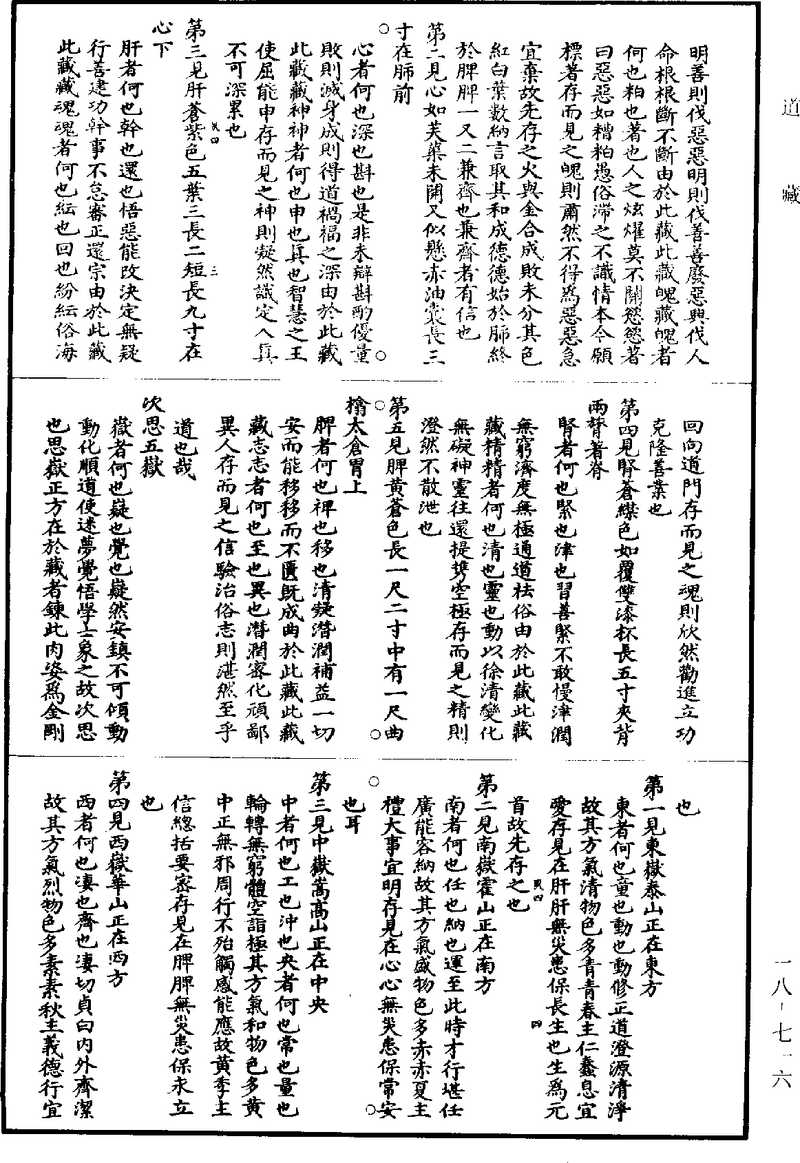 道藏
明善則伐惡惡明則伐善善廢惡興伐人
命根根斷不斷由於此藏此藏魄藏魄者
何也粕也著也人之炫燿莫不關慾慾著
曰惡惡如糟粕愚俗滯之不識情本今願
標著存而見之魄則肅然不得為惡惡急
宜棄故先存之火與金合成敗未分其色
紅白葉數納言取其和成德德始於肺終
於脾脾一又二兼齊也兼齊者有信也
第二見心如芙蕖未開又似懸赤油囊長三
寸在肺前
心者何也深也斟也是非未辯斟酌優量
敗則滅身成則得道禍福之深由於此藏
此藏藏神神者何也申也真也智慧之王
使屈能申存而見之神則凝然識定入真
不可深累也
第三見肝蒼紫色五葉三長二短長九寸在
心下
肝者何也幹也還也悟惡能改決定無疑
行善建功幹事不怠審正還宗由於此藏
此藏藏魂魂者何也紜也回也紛紜俗海
回向道門存而見之魂則欣然勸進立功
克隆善業也
第四見腎蒼緤色如覆雙漆杯長五寸夾背
兩膂著脊
腎者何也緊也津也習善緊不敢慢津潤
無窮濟度無極通道袪俗由於此藏此藏
藏精精者何也清也靈也動以徐清變化
無礙神靈往還提携空極存而見之精則
澄然不散泄也
第五見脾黃蒼色長一尺二寸中有一尺曲
檎太倉胃上
脾者何也裨也移也清凝潛潤補益一切
安而能移移而不匱既成曲於此藏此藏
藏志志者何也至也異也潛潤密化頑鄙
異人存而見之信驗治俗志則湛然至乎
道也哉
次思五嶽
嶽者何也嶷也覺也嶷然安鎮不可傾動
動化順道使迷夢覺悟學士象之故次思
也思嶽正方在於藏者鍊此肉姿為金剛
也
第一見東嶽泰山正在東方
東者何也童也動也動修正道澄源清淨
故其方氣清物色多青青春主仁蠢息宜
愛存見在肝肝無災患保長生也生為元
首故先存之也
第二見南嶽霍山正在南方
南者何也任也納也運至此時才行堪任
廣能容納故其方氣盛物色多赤赤夏主
禮大事宜明存見在心心無災患保常安
也耳
第三見中嶽嵩高山正在中央
中者何也工也沖也央者何也常也量也
輪轉無窮體空詣極其方氣和物色多黃
中正無邪周行不殆觸感能應故黃季主
信總括要密存見在脾脾無災患保永立
也
第四見西嶽華山正在西方
西者何也淒也齊也淒切貞白內外齊潔
故其方氣烈物色多素素秋主義德行宜
一八-七一六